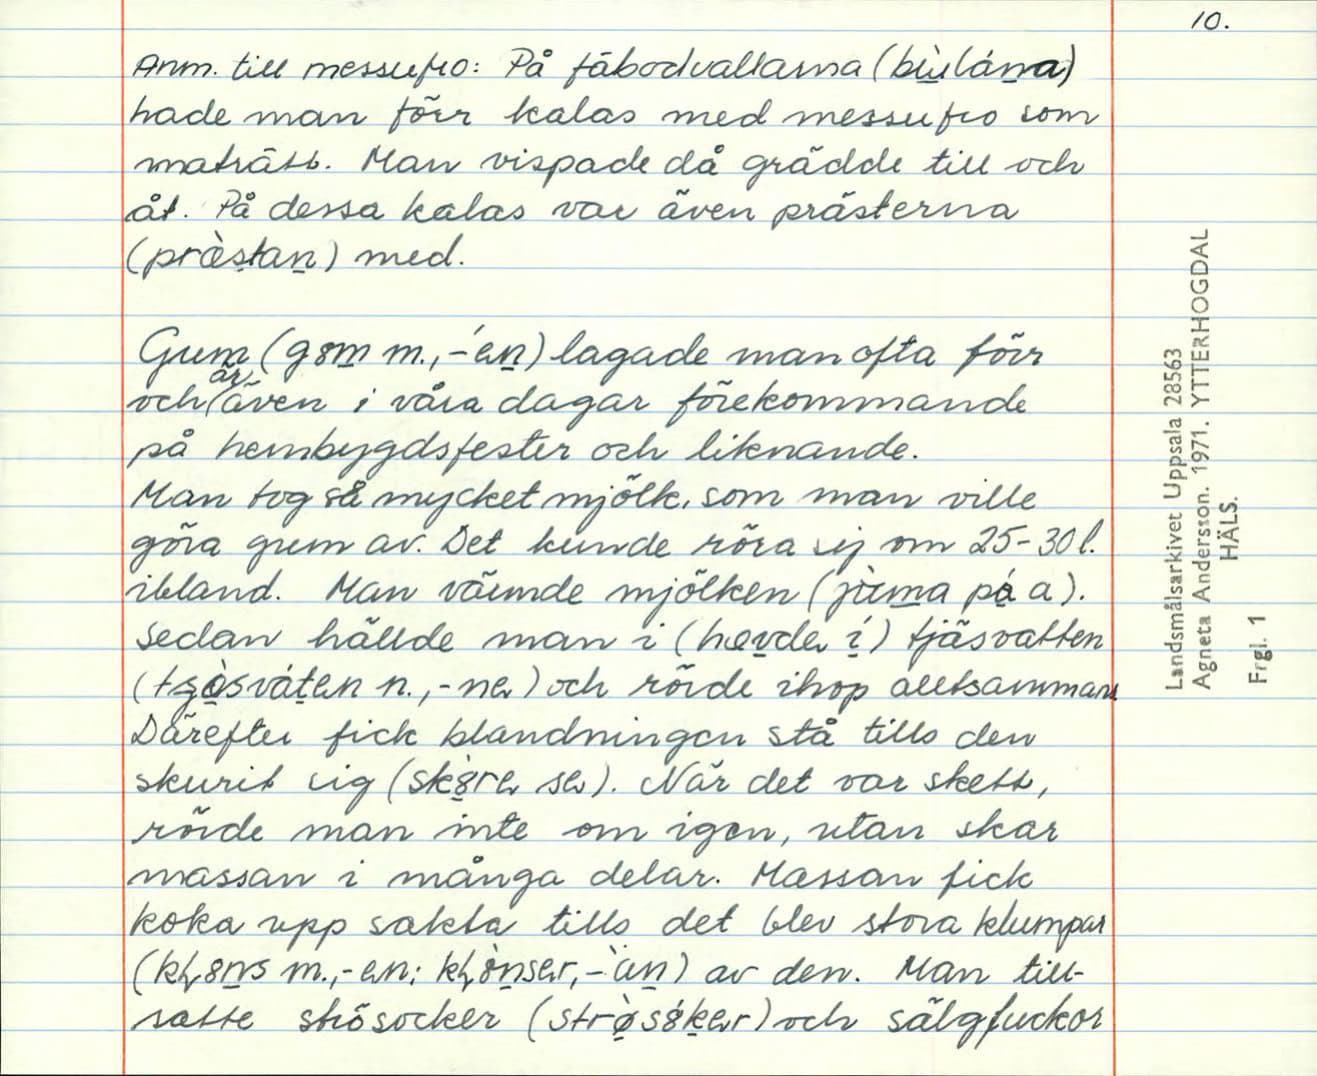 10.
Anm. till messufro: På fäbodvallarna (bùlána)
hade man förr kalas med messufro som
maträtt. Man vispade då grädde till och
åt. På dessa kalas var även prästerna
(præ̀stan) med.
Gum (g8m m., -́en) lagade man ofta förr
och är även i våra dagar förekommande
på hembygdsfester och liknande.
Man tog så mycket mjölk, som man ville
göra gum av. Det kunde röra sej om 25-30 l.
ibland. Man värmde mjölken (
Sedan hällde man i (
) tjäsvatten
n., -ne) och rörde ihop alltsammans
Därefter fick blandningen stå tills den
skurit sig (sk8̀re se). När det var skett,
rörde man inte om igen, utan skar
massan i många delar. Massan fick
koka upp sakta tills det blev stora klumpar
m., -en;
) av den. Man till-
satte strösocker (strø̀s8́ker) och sälgfuckor
Landsmålsarkivet Uppsala 28563
Agneta Andersson. 1971. YTTERHOGDAL
HÄLS.
Frgl. 1